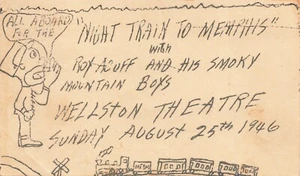 ALL ABOARD
FOR THE
"NIGHT TRAIN TO MEMPHIS"
with
ROY ACUFF AND HIS SMOKY
MOUNTAIN BOYS
WELLSTON THEATRE
SUNDAY AUGUST 25th 1946